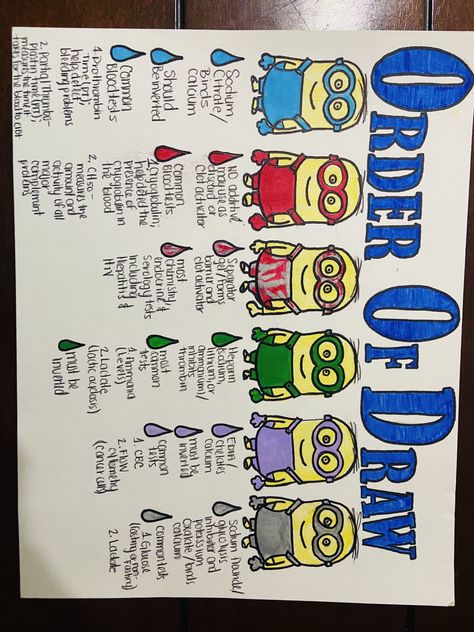 ORDER OF DRAW
Sodium,
Citrate/
Binds
calcium
Should
be inverted
Common
Blood tests
1. Prothrombin
Time (PT)
help detect
bleeding problems
2. Partial Thrombo-
plastin Time (PTT)
measures the time it
takes for the blood to clot
NO additive,
may use as
clot activator
Common
Blood tests
1. cryoglobulin,
help detect the
presence of
cryoglobulin in
the blood
2. CH50-
measures the
amount and
activity of all
major
complement
proteins
Separator
gel forms
barrier and
clot activator
most
chemistry,
endocrine &
serology tests
including
Hepatitis &
HIV
Heparin
(sodium,
lithium, or
ammonium)/
inhibits
thrombin
most
common
tests
1. Ammonia
(Levels)
2. Lactate
(lactic acidosis)
must be
inverted
EDTA/
chelates
calcium
must be
inverted
common
tests
1. CBC
2. Flow
cytometry
(cancer cells)
Sodium Flouride/
glycolysis
inhibitor and
potassium
Oxalate/binds
calcium
common tests
1. Glucose
(fasting or non-
fasting)
2. Lactate